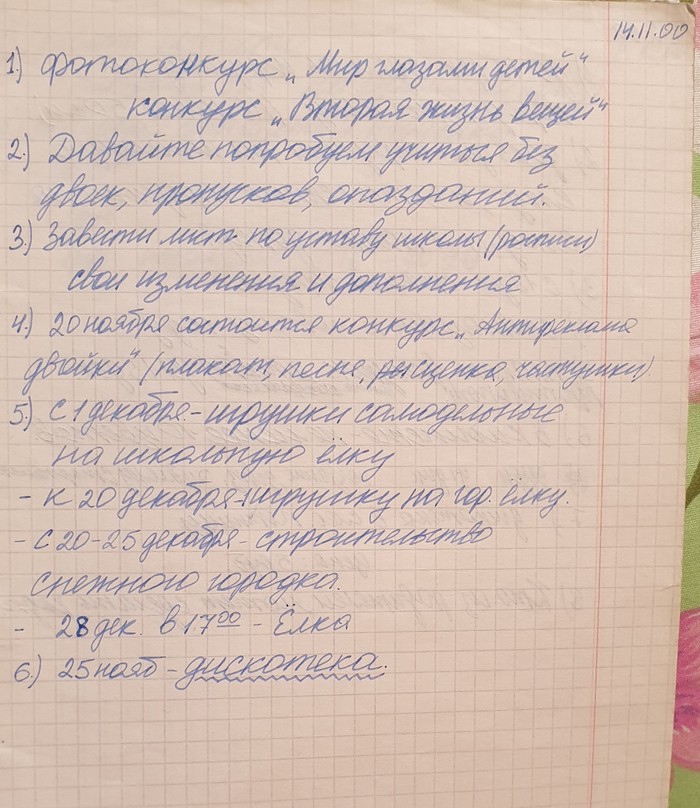 14.11.00
1.) Фотоконкурс „Мир глазами детей"
конкурс „Вторая жизнь вещей"
2.) Давайте попробуем учиться без
двоек, пропусков, опозданий.
3.) Завести лист по уставу школы (росписи)
свои изменения и дополнения
4.) 20 ноября состоится конкурс „Антиреклама
двойки" (плакат, песня, сценка, частушки)
5.) С 1 декабря - игрушки самодельные
на школьную ёлку
- к 20 декабря - 1 игрушку на гор. ёлку.
- с 20-25 декабря - строительство
снежного городка.
- 28 дек. в 17 00 - Ёлка
6.) 25 нояб - дискотека.